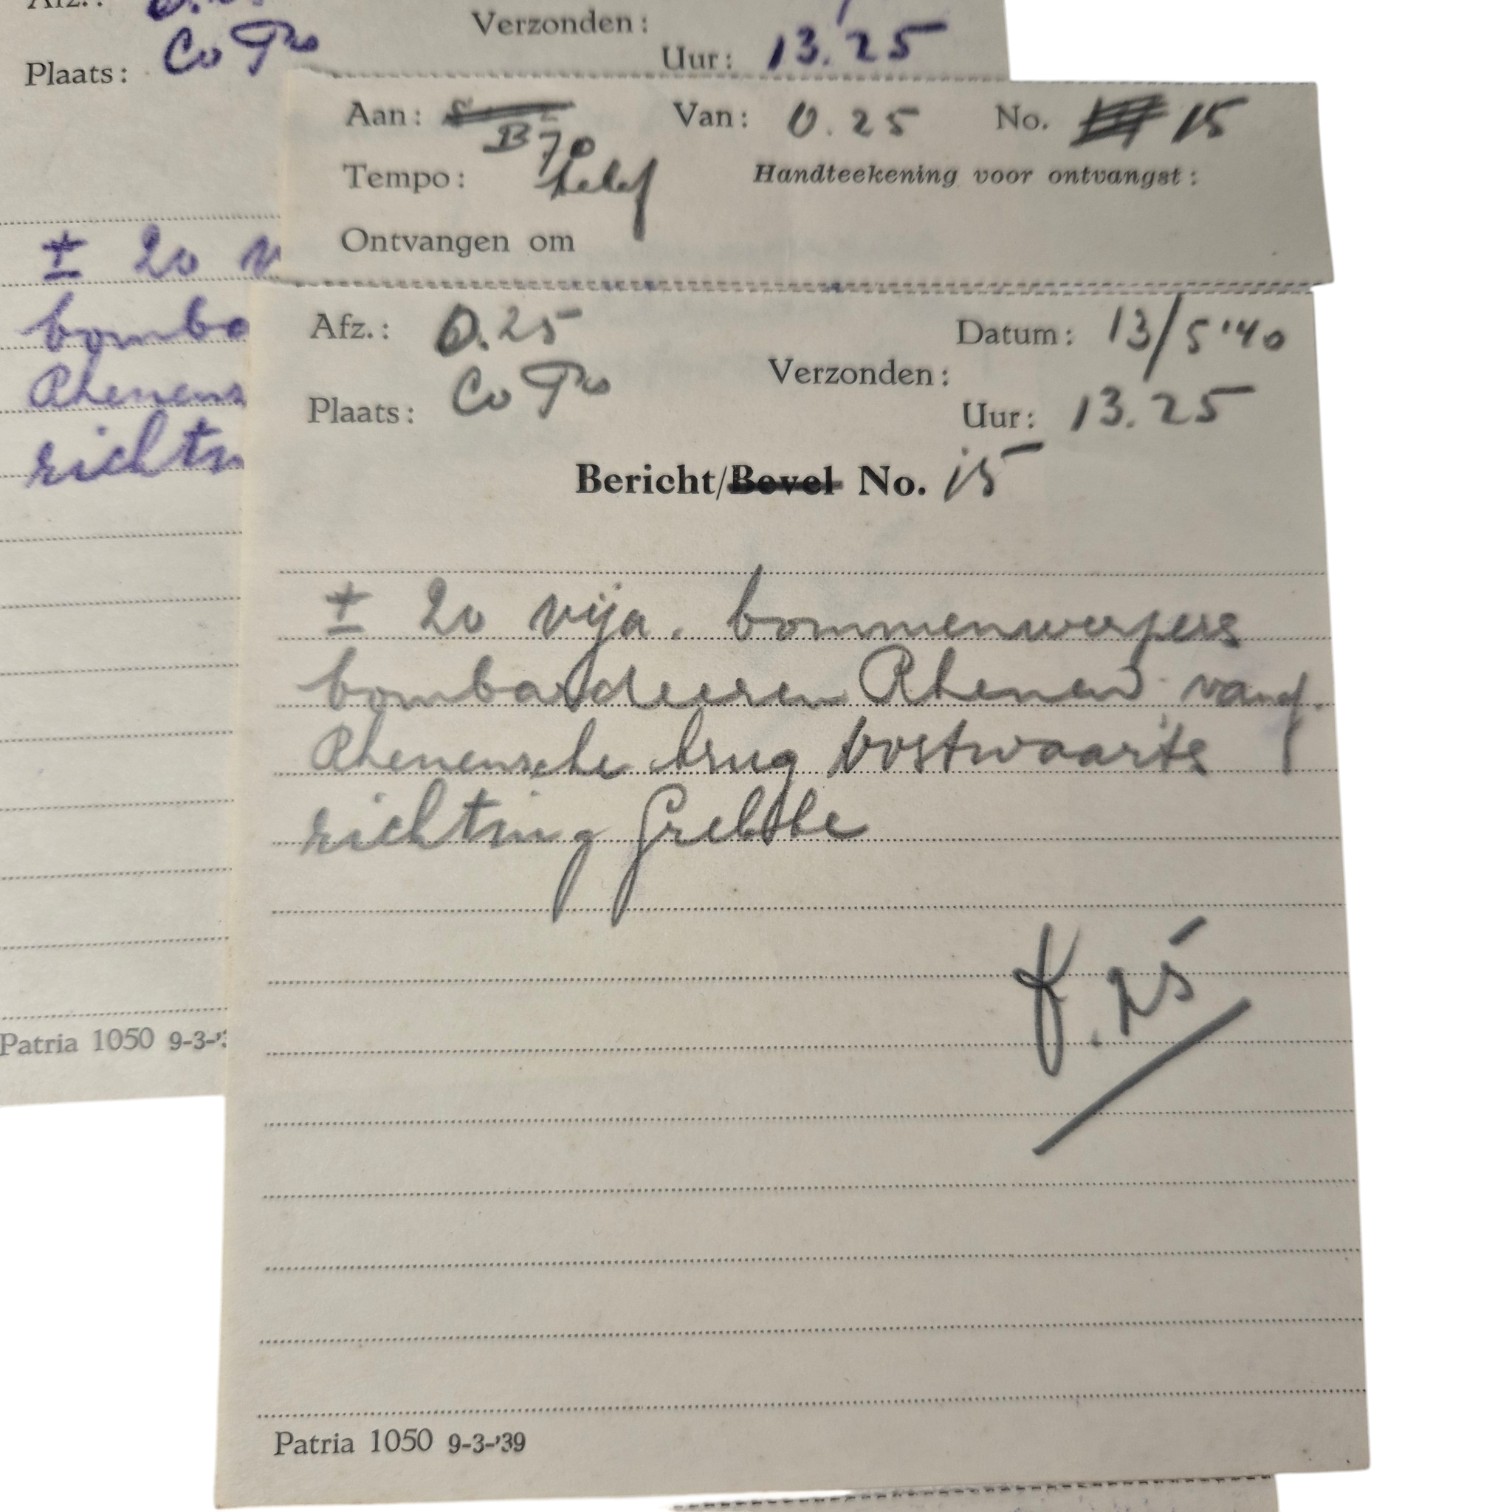 Verzonden:
Plaats: Co Tro
Uur: 13.25
± 20 v
bomba
Rhenens
richtin
Patria 1050 9-3-'3
Aan: B70 Van: O.25 No. 15
Tempo: telef Handteekening voor ontvangst:
Ontvangen om
Afz.: O.25 Datum: 13/5'40
Verzonden:
Plaats: Co Tro Uur: 13.25
Bericht/Bevel No. 15
± 20 vija. bommenwerpers
bombardeeren Rhenen vanaf
Rhenensche brug oostwaarts
richting Grebbe
f. 25
Patria 1050 9-3-'39